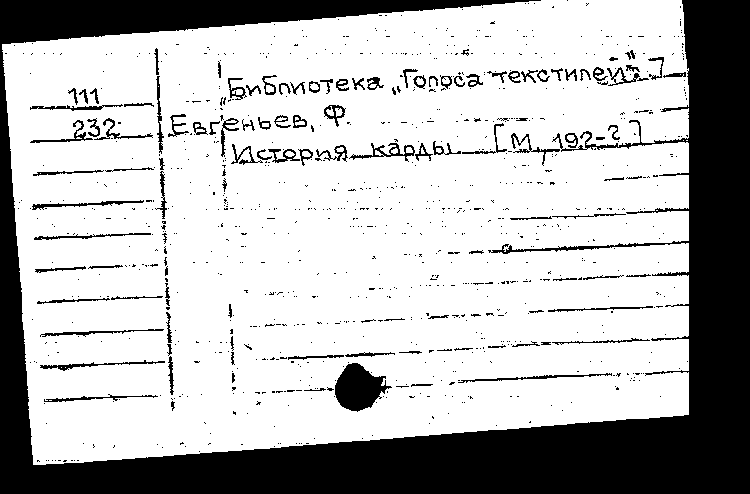 Библиотека „Голоса текстилей". 7
111
232 Евгеньев, Ф.
История карды [М, 192-?]